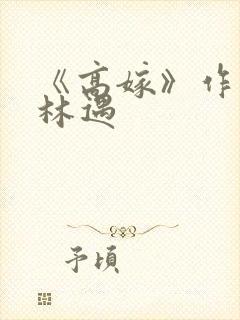 《高嫁》作
林遇
予頃